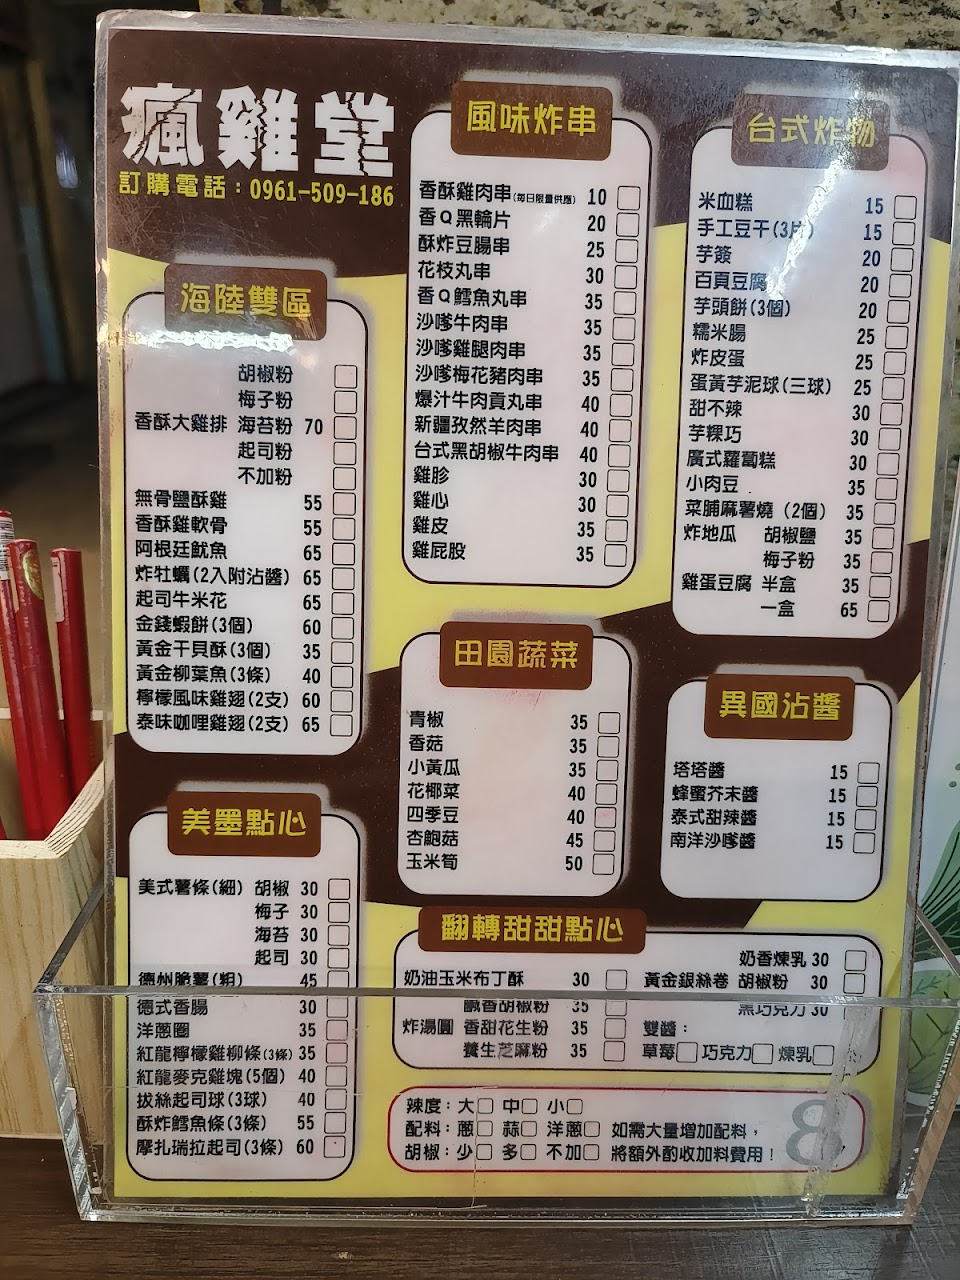 瘋雞堂
訂購電話：0961-509-186
海陸雙區
胡椒粉
梅子粉
香酥大雞排 海苔粉 70
起司粉
不加粉
無骨鹽酥雞 55
香酥雞軟骨 55
阿根廷魷魚 65
炸牡蠣(2入附沾醬) 65
起司牛米花 65
金錢蝦餅(3個) 60
黃金干貝酥(3個) 35
黃金柳葉魚(3條) 40
檸檬風味雞翅(2支) 60
泰味咖哩雞翅(2支) 65
美墨點心
美式薯條(細) 胡椒 30
梅子 30
海苔 30
起司 30
德州脆薯(粗) 45
德式香腸 30
洋蔥圈 35
紅龍檸檬雞柳條(3條) 35
紅龍麥克雞塊(5個) 40
拔絲起司球(3球) 40
酥炸鱈魚條(3條) 55
摩扎瑞拉起司(3條) 60
風味炸串
香酥雞肉串(每日限量供應) 10
香Q黑輪片 20
酥炸豆腸串 25
花枝丸串 30
香Q鱈魚丸串 35
沙嗲牛肉串 35
沙嗲雞腿肉串 35
沙嗲梅花豬肉串 35
爆汁牛肉貢丸串 40
新疆孜然羊肉串 40
台式黑胡椒牛肉串 40
雞胗 30
雞心 30
雞皮 35
雞屁股 35
田園蔬菜
青椒 35
香菇 35
小黃瓜 35
花椰菜 40
四季豆 40
杏鮑菇 45
玉米筍 50
台式炸物
米血糕 15
手工豆干(3片) 15
芋簽 20
百頁豆腐 20
芋頭餅(3個) 20
糯米腸 25
炸皮蛋 25
蛋黃芋泥球(三球) 25
甜不辣 30
芋粿巧 30
廣式蘿蔔糕 30
小肉豆 35
菜脯麻薯燒(2個) 35
炸地瓜 胡椒鹽 35
梅子粉 35
雞蛋豆腐 半盒 35
一盒 65
異國沾醬
塔塔醬 15
蜂蜜芥末醬 15
泰式甜辣醬 15
南洋沙嗲醬 15
翻轉甜甜點心
奶油玉米布丁酥 30
鹹香胡椒粉 35
炸湯圓 香甜花生粉 35
養生芝麻粉 35
奶香煉乳 30
黃金銀絲卷 胡椒粉 30
黑巧克力 30
雙醬：
草莓 巧克力 煉乳
辣度：大 中 小
配料：蔥 蒜 洋蔥 如需大量增加配料，
胡椒：少 多 不加 將額外酌收加料費用！
8